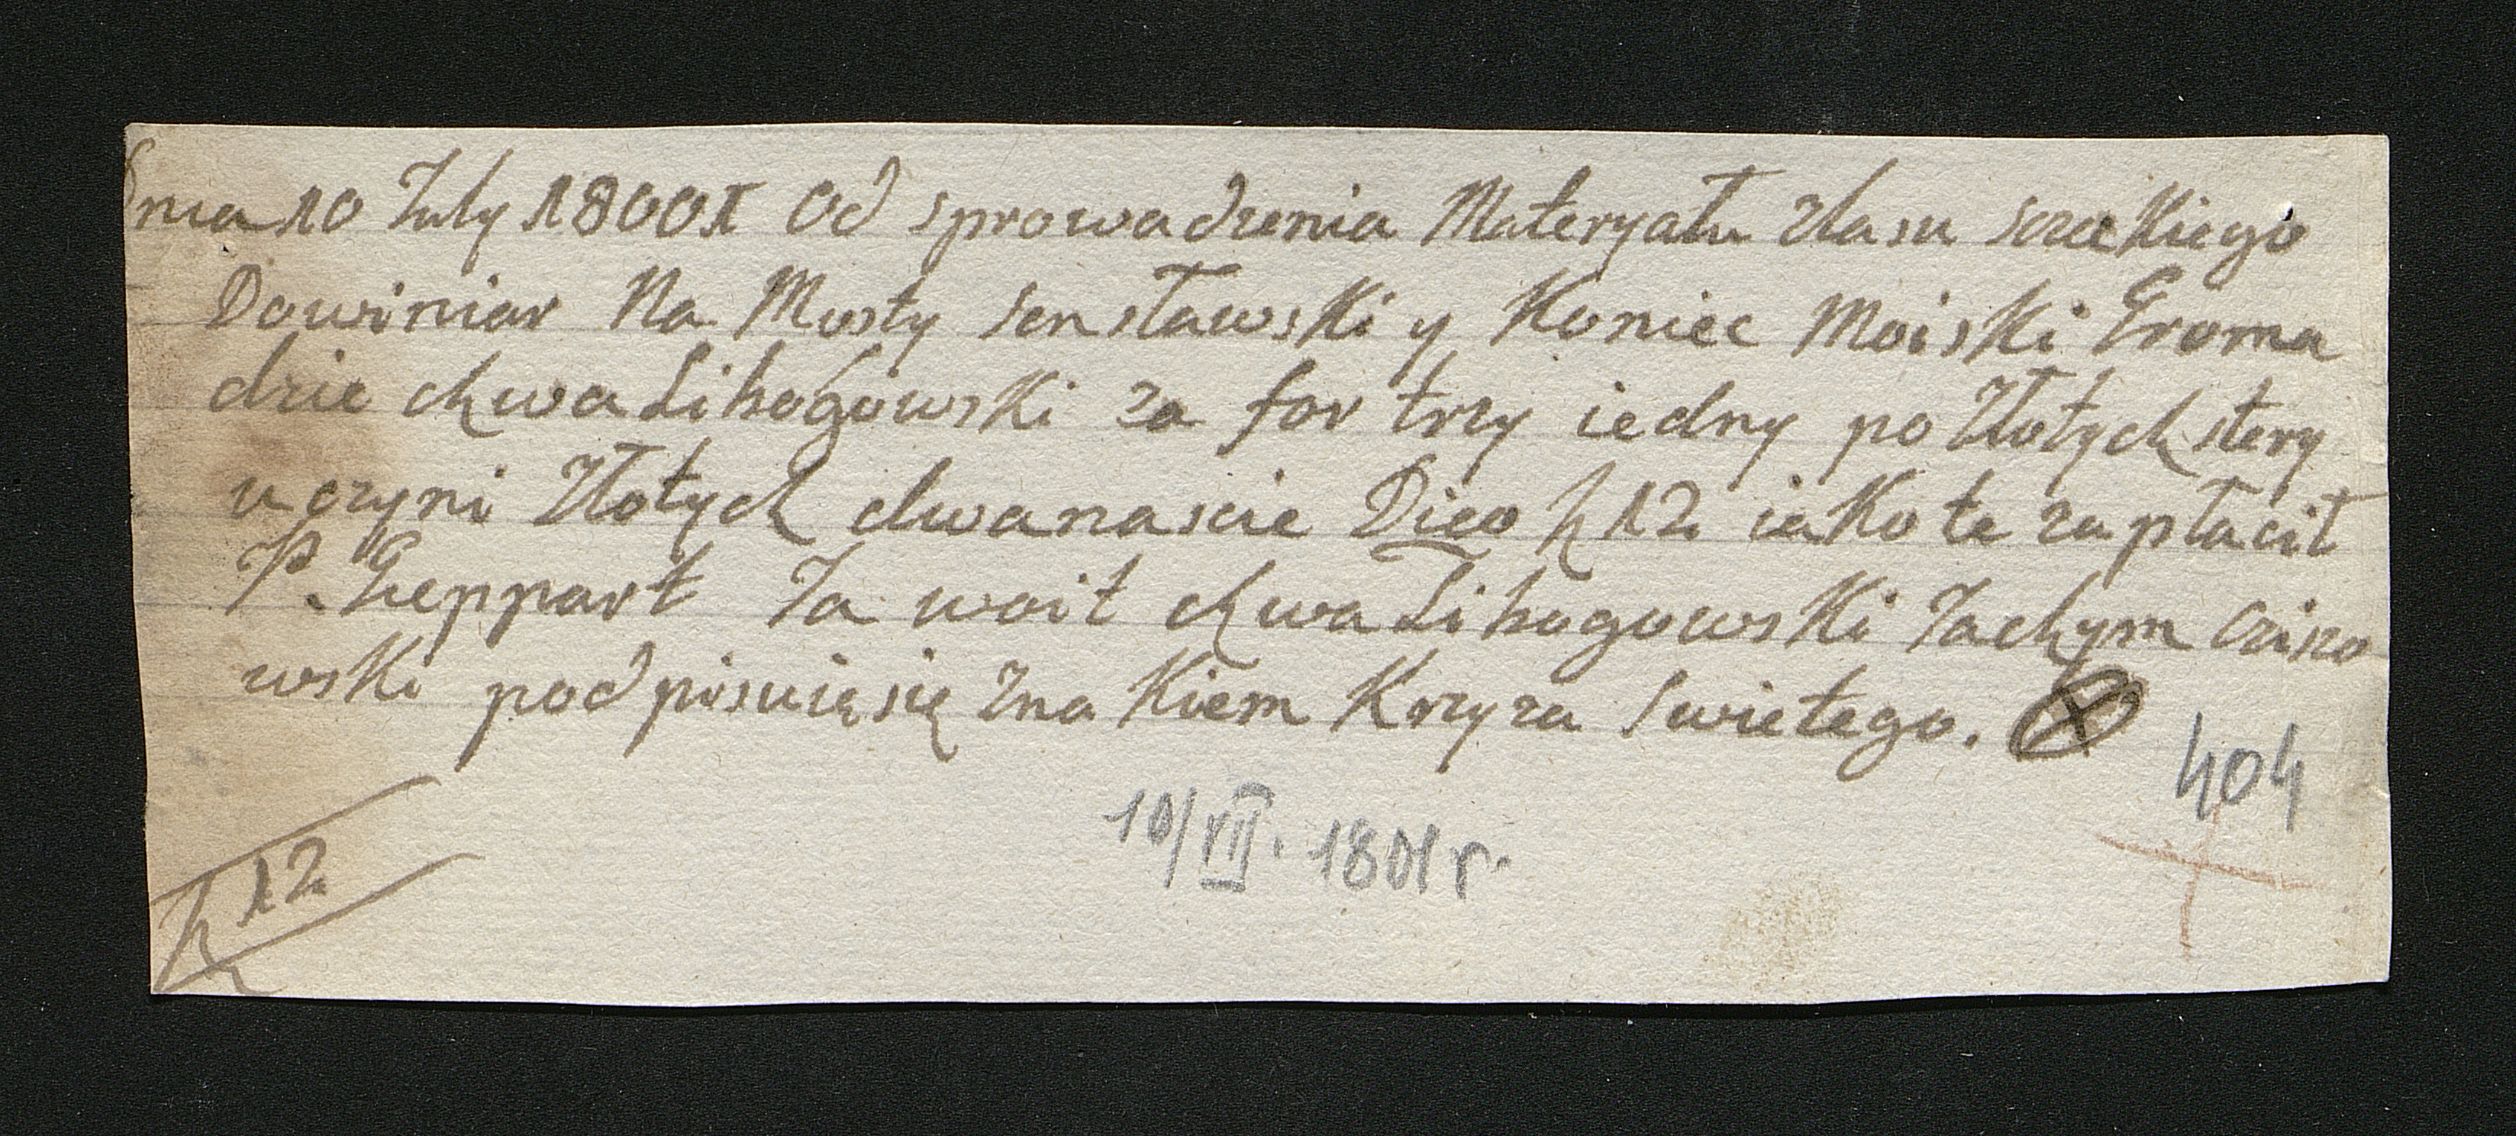 Dnia 10 July 18001 Od sprowadzenia Materyału zlasu
Dowiniar Na Mosty Senstawski y Koniec Moiski Groma
dzie chwalibogowski za for trzy iedny po Złotych stery
uczyni Złotych dwanascie Dico ƒ 12 iako te zapłacił
P. Geppart Ja woit chwalibogowski Jachym
wski podpisuię się Zna Kiem Krzyza Swietego. X
404
10/VII. 1801 r.
ƒ 12